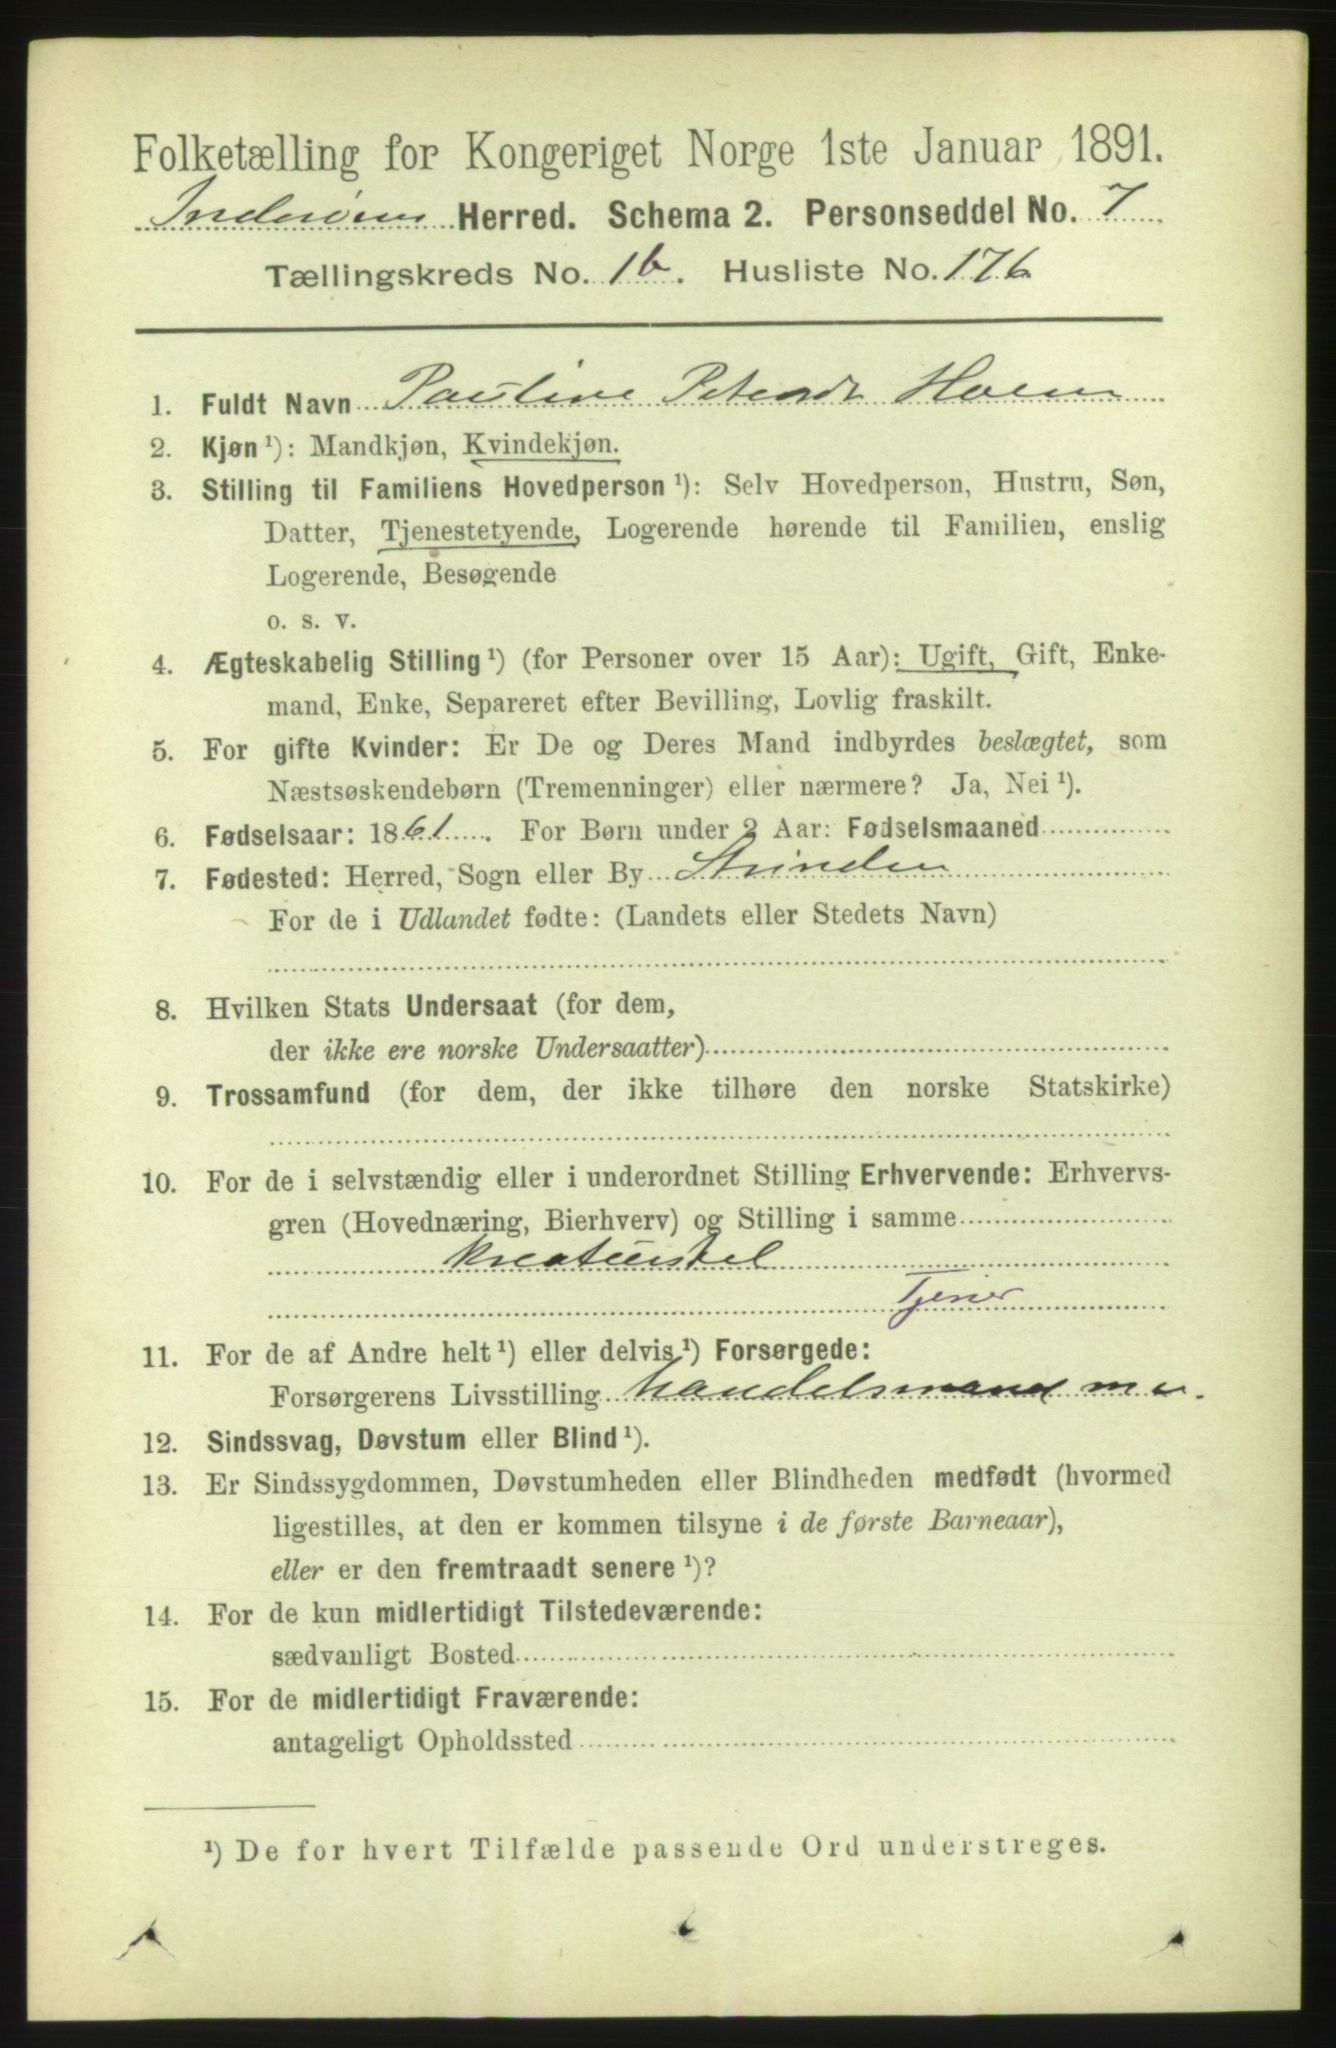 Folketælling for Kongeriget Norge 1ste Januar 1891.
Inderøens Herred. Schema 2. Personseddel No. 7
Tællingskreds No. 1b. Husliste No. 176
1. Fuldt Navn Pauline Petersdt Hoem
2. Kjøn ¹): Mandkjøn, Kvindekjøn.
3. Stilling til Familiens Hovedperson ¹): Selv Hovedperson, Hustru, Søn,
Datter, Tjenestetyende, Logerende hørende til Familien, enslig
Logerende, Besøgende
o. s. v.
4. Ægteskabelig Stilling ¹) (for Personer over 15 Aar): Ugift, Gift, Enke-
mand, Enke, Separeret efter Bevilling, Lovlig fraskilt.
5. For gifte Kvinder: Er De og Deres Mand indbyrdes beslægtet, som
Næstsøskendebørn (Tremenninger) eller nærmere? Ja, Nei ¹).
6. Fødselsaar: 1861. For Børn under 2 Aar: Fødselsmaaned
7. Fødested: Herred, Sogn eller By Strinden
For de i Udlandet fødte: (Landets eller Stedets Navn)
8. Hvilken Stats Undersaat (for dem,
der ikke ere norske Undersaatter)
9. Trossamfund (for dem, der ikke tilhøre den norske Statskirke)
10. For de i selvstændig eller i underordnet Stilling Erhvervende: Erhvervs-
gren (Hovednæring, Bierhverv) og Stilling i samme
Kreaturstel
Tjener
11. For de af Andre helt ¹) eller delvis ¹) Forsørgede:
Forsørgerens Livsstilling handelsmand
12. Sindssvag, Døvstum eller Blind ¹).
13. Er Sindssygdommen, Døvstumheden eller Blindheden medfødt (hvormed
ligestilles, at den er kommen tilsyne i de første Barneaar),
eller er den fremtraadt senere ¹)?
14. For de kun midlertidigt Tilstedeværende:
sædvanligt Bosted
15. For de midlertidigt Fraværende:
antageligt Opholdssted
¹) De for hvert Tilfælde passende Ord understreges.